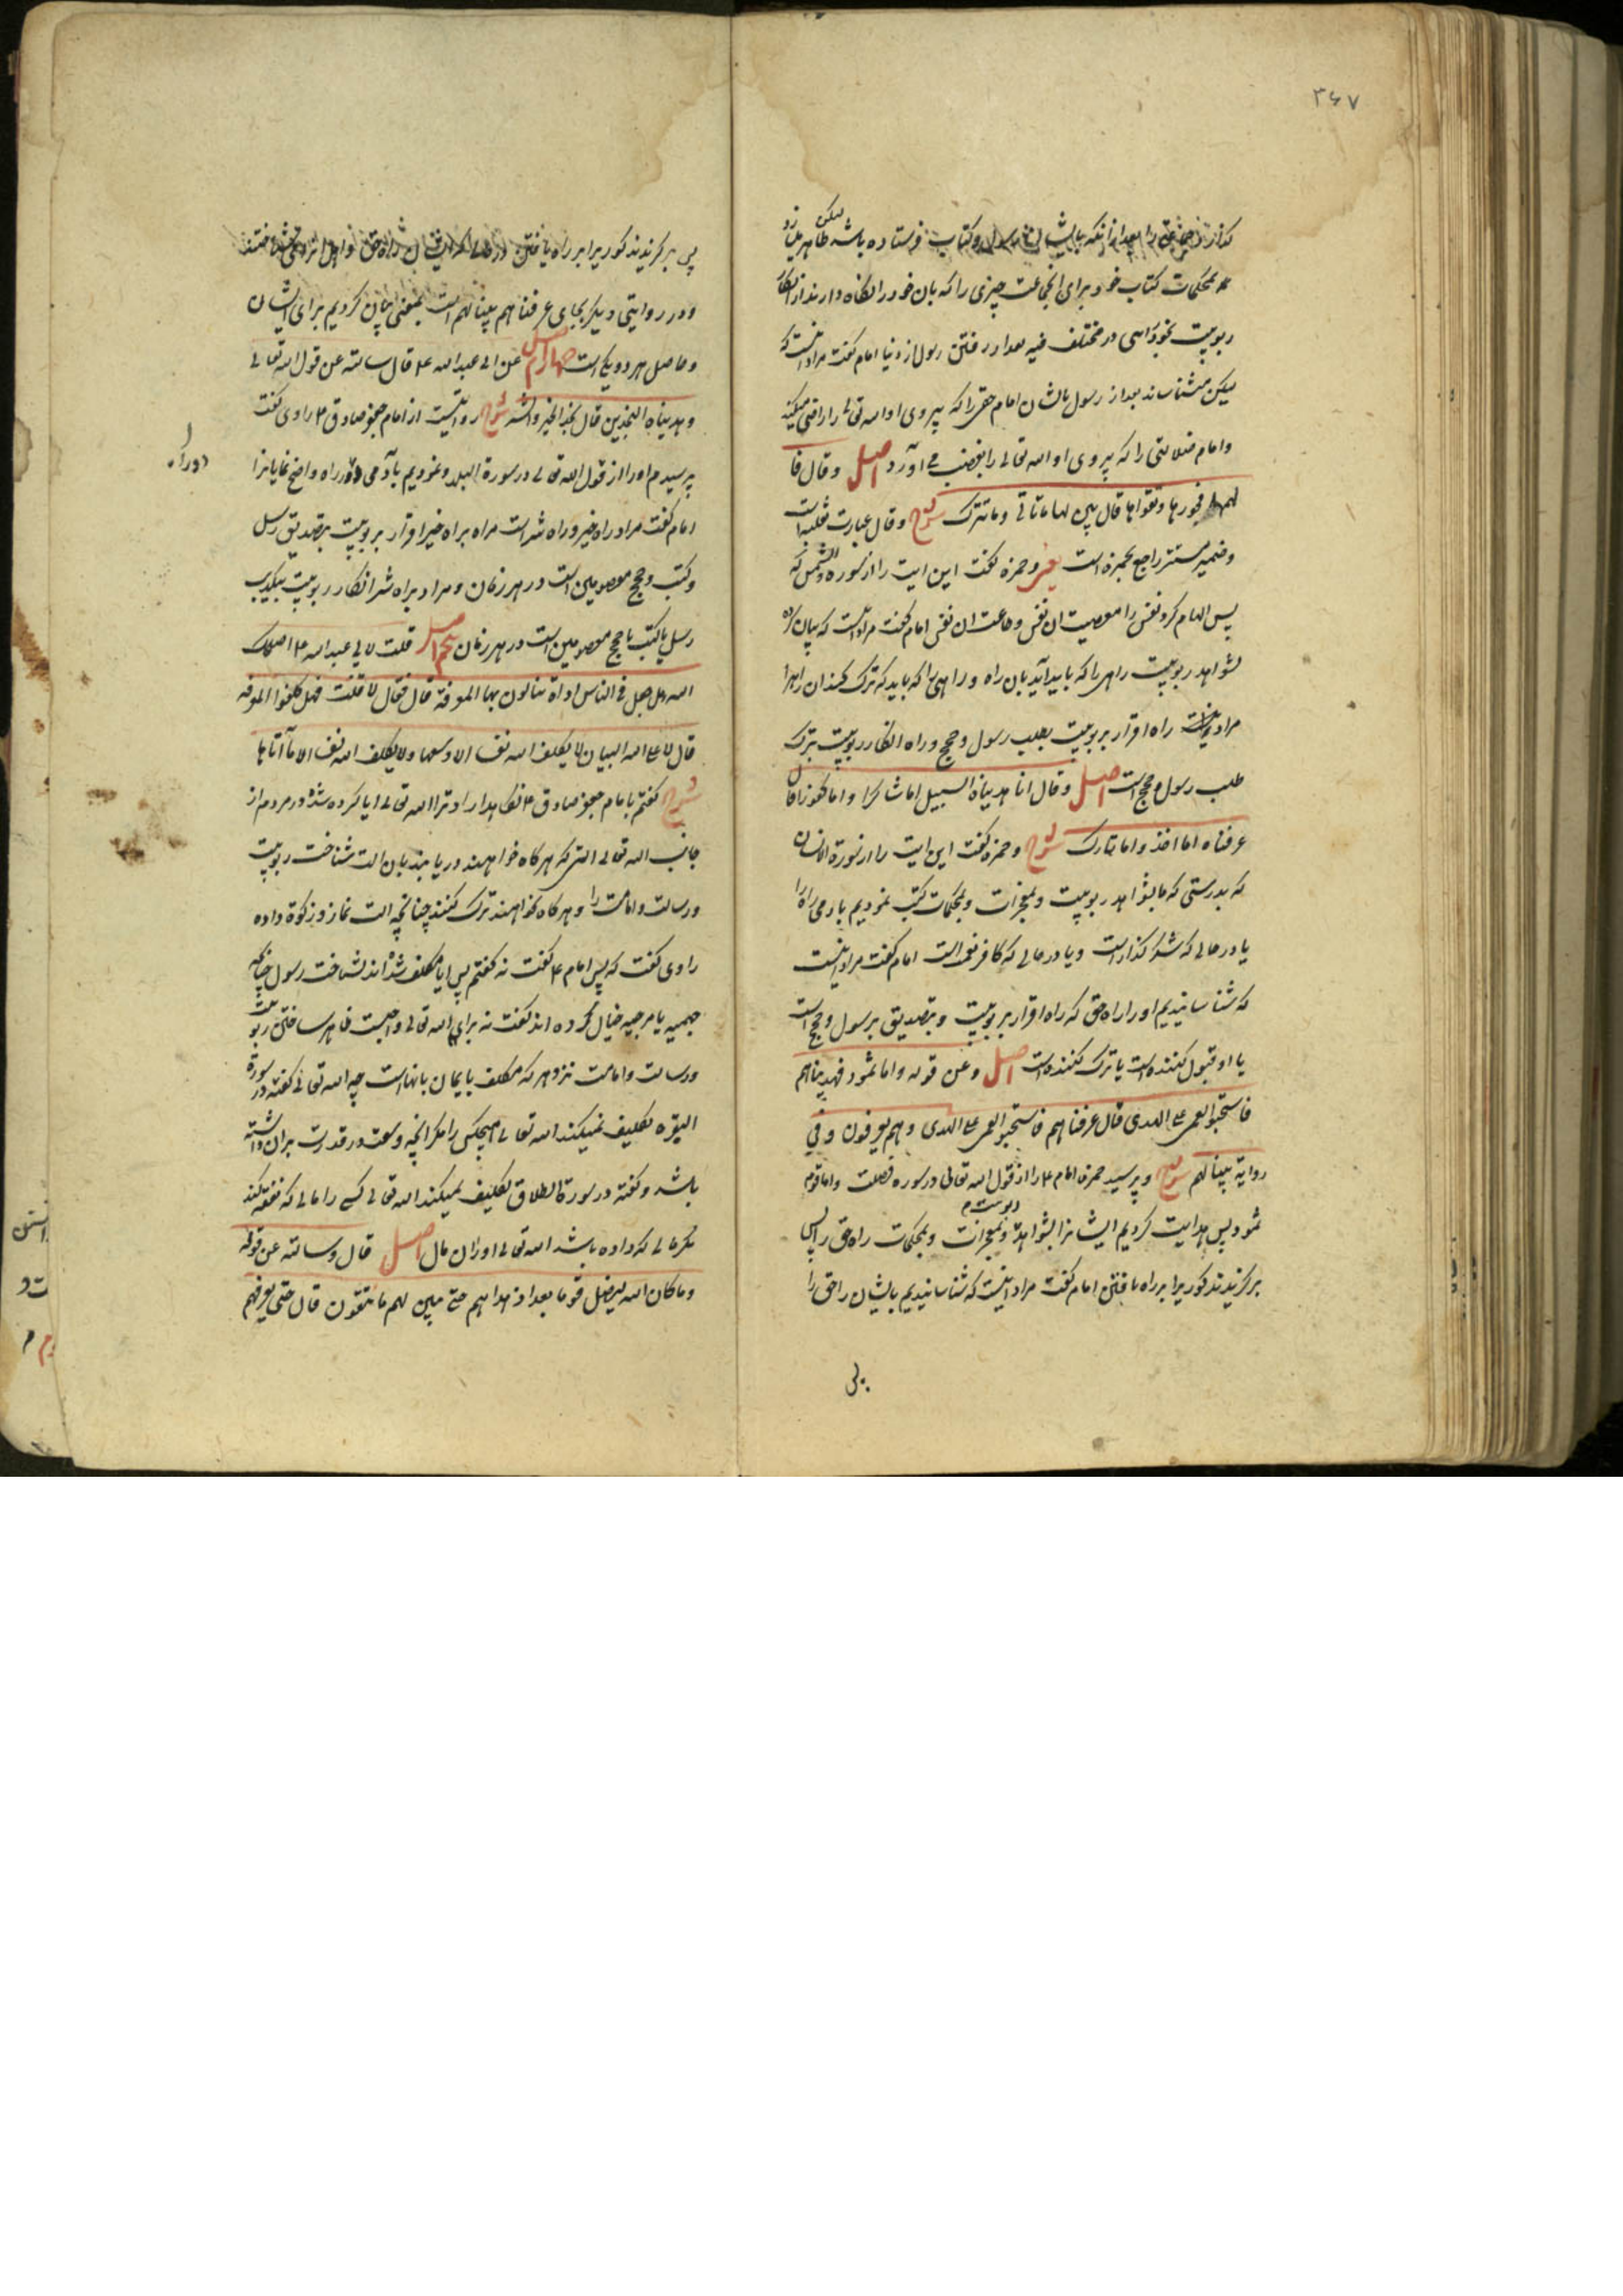 ۳۶۷
گذارنده جماعتی را بعد از آنکه بایشان رسول و کتاب فرستاده باشد لیکن ظاهر میسازد
محکمات کتاب خود برای انجماعت چیزی را که بان خود را نگاه دارند از انکار
ربوبیت بخودرایی در مختلف فیه بعد از رفتن رسول از دنیا امام گفت مراد اینست که
لیکن میشناساند بعد از رسول بایشان امام حقی را که پیروی او الله تعالی را راضی میکند
وامام ضلالتی را که پیروی او الله تعالی را بغضب می آورد اصل وقال فا
لهمها فجورها وتقواها قال بین لها ماتأتی وماتترک شرح وقال عبارت ثعلبه است
وضمیر مستتر راجع بحمزه است یعنی وحمزه گفت این ایت را از سوره والشمس که
پس الهام کرد نفس را معصیت ان نفس وطاعت ان نفس امام گفت مراد اینست که بیان کرده
بشواهد ربوبیت راهی را که باید آید بان راه وراهی را که باید که ترک کند ان راه را
مراد اینست راه اقرار بربوبیت بطلب رسول وحجج وراه انکار ربوبیت بترک
طلب رسول وحجج است اصل وقال انا هدیناه السبیل اما شاکرا واما کفورا قال
عرفناه اما اخذ واما تارک شرح وحمزه گفت این ایت را از سورة الانسان
که بدرستی که ما بشواهد ربوبیت وبمعجزات وبمحکمات کتب نمودیم بادمی راه را
یا در حالی که شکر گذار است ویا در حالی که کافر نعمت است امام گفت مراد اینست
که شناسانیدیم او را راه حق که راه اقرار بربوبیت وبتصدیق برسول وحجج است
یا او قبول کننده است یا ترک کننده است اصل وعن قوله واما ثمود فهدیناهم
فاستحبوا العمی علی الهدی قال عرفناهم فاستحبوا العمی علی الهدی وهم یعرفون وفی
روایة بینا لهم شرح وپرسید حمزه امام ع را از قول الله تعالی در سوره فصلت واما قوم
ثمود پس هدایت کردیم ایشانرا بشواهد ربوبیت وبمعجزات وبمحکمات راه حق را پس
برگزیدند کوریرا بر راه یافتن امام گفت مراد اینست که شناسانیدیم بایشان راه حق را
پس
پس برگزیدند کوریرا بر راه یافتن در حالی که ایشان راه حق واهل انرا میشناختند
ودر روایتی دیگر بجای عرفناهم بینا لهم است بمعنی بیان کردیم برای ایشان
وحاصل هر دو یکی است چهارم اصل عن ابی عبدالله ع قال سالته عن قول الله تعالی
وهدیناه النجدین قال نجد الخیر والشر شرح روایتست از امام جعفر صادق ع راوی گفت
پرسیدم او را از قول الله تعالی در سورة البلد ونمودیم بآدمی دو راه واضح نمایانرا
دو راه
امام گفت مراد راه خیر وراه شر است مراد براه خیر اقرار بربوبیت بتصدیق رسل
وکتب وحجج معصومین است در هر زمان ومراد براه شر انکار ربوبیت بتکذیب
رسل یا کتب یا حجج معصومین است در هر زمان پنجم اصل قلت لابی عبدالله ع اصلحک
الله هل جعل فی الناس اداة ینالون بها المعرفة قال فقال لا قلت فهل کلفوا المعرفة
قال لا علی الله البیان لا یکلف الله نفسا الا وسعها ولا یکلف الله نفسا الا ما آتاها
شرح گفتم با امام جعفر صادق ع نگاهدارا د ترا الله تعالی ایا کرده شده در مردم از
جانب الله تعالی التی که هرگاه خواهند دریابند بان الت شناخت ربوبیت
ورسالت وامامت را وهرگاه نخواهند ترک کنند چنانچه الت نماز وزکوة داده
راوی گفت که پس امام ع گفت نه گفتم پس ایا مکلف شده اند بشناخت رسول چنانچه
جهمیه یا مرجیه خیال کرده اند گفت نه برای الله تعالی واجبست ظاهر ساختن ربوبیت
ورسالت وامامت نزد هر که مکلف بایمان بانهاست چه الله تعالی گفته در سورة
البقره تکلیف نمیکند الله تعالی هیچکس را مگر انچه وسعت وقدرت بران داشته
باشد وگفته در سورة الطلاق تکلیف نمیکند الله تعالی کسی را مالی که نفقه کند
مگر مالی که داده باشد الله تعالی او را ان مال اصل قال وسالته عن قوله
وما کان الله لیضل قوما بعد اذ هداهم حتی یبین لهم ما یتقون قال حتی یعرفهم